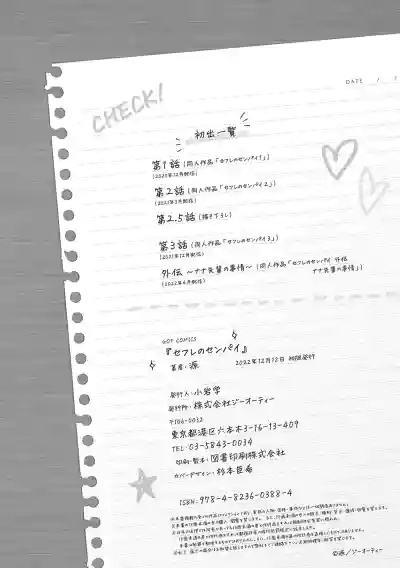 DATE / /
CHECK!
初出一覧
第1話 (同人作品「セフレのセンパイ1」)
(2020年12月配信)
第2話 (同人作品「セフレのセンパイ2」)
(2021年5月配信)
第2.5話 (描き下ろし)
第3話 (同人作品「セフレのセンパイ3」)
(2021年12月配信)
外伝 ～ナナ先輩の事情～ (同人作品「セフレのセンパイ 外伝
ナナ先輩の事情」)
(2022年6月配信)
GOT COMICS
『セフレのセンパイ』
著者:源 2022年12月12日 初版発行
発行人:小岩学
発行所:株式会社ジーオーティー
〒106-0032
東京都港区六本木3-16-13-409
TEL:03-5843-0034
印刷・製本:図書印刷株式会社
カバーデザイン:杉本臣希
ISBN:978-4-8236-0388-4
©源/ジーオーティー